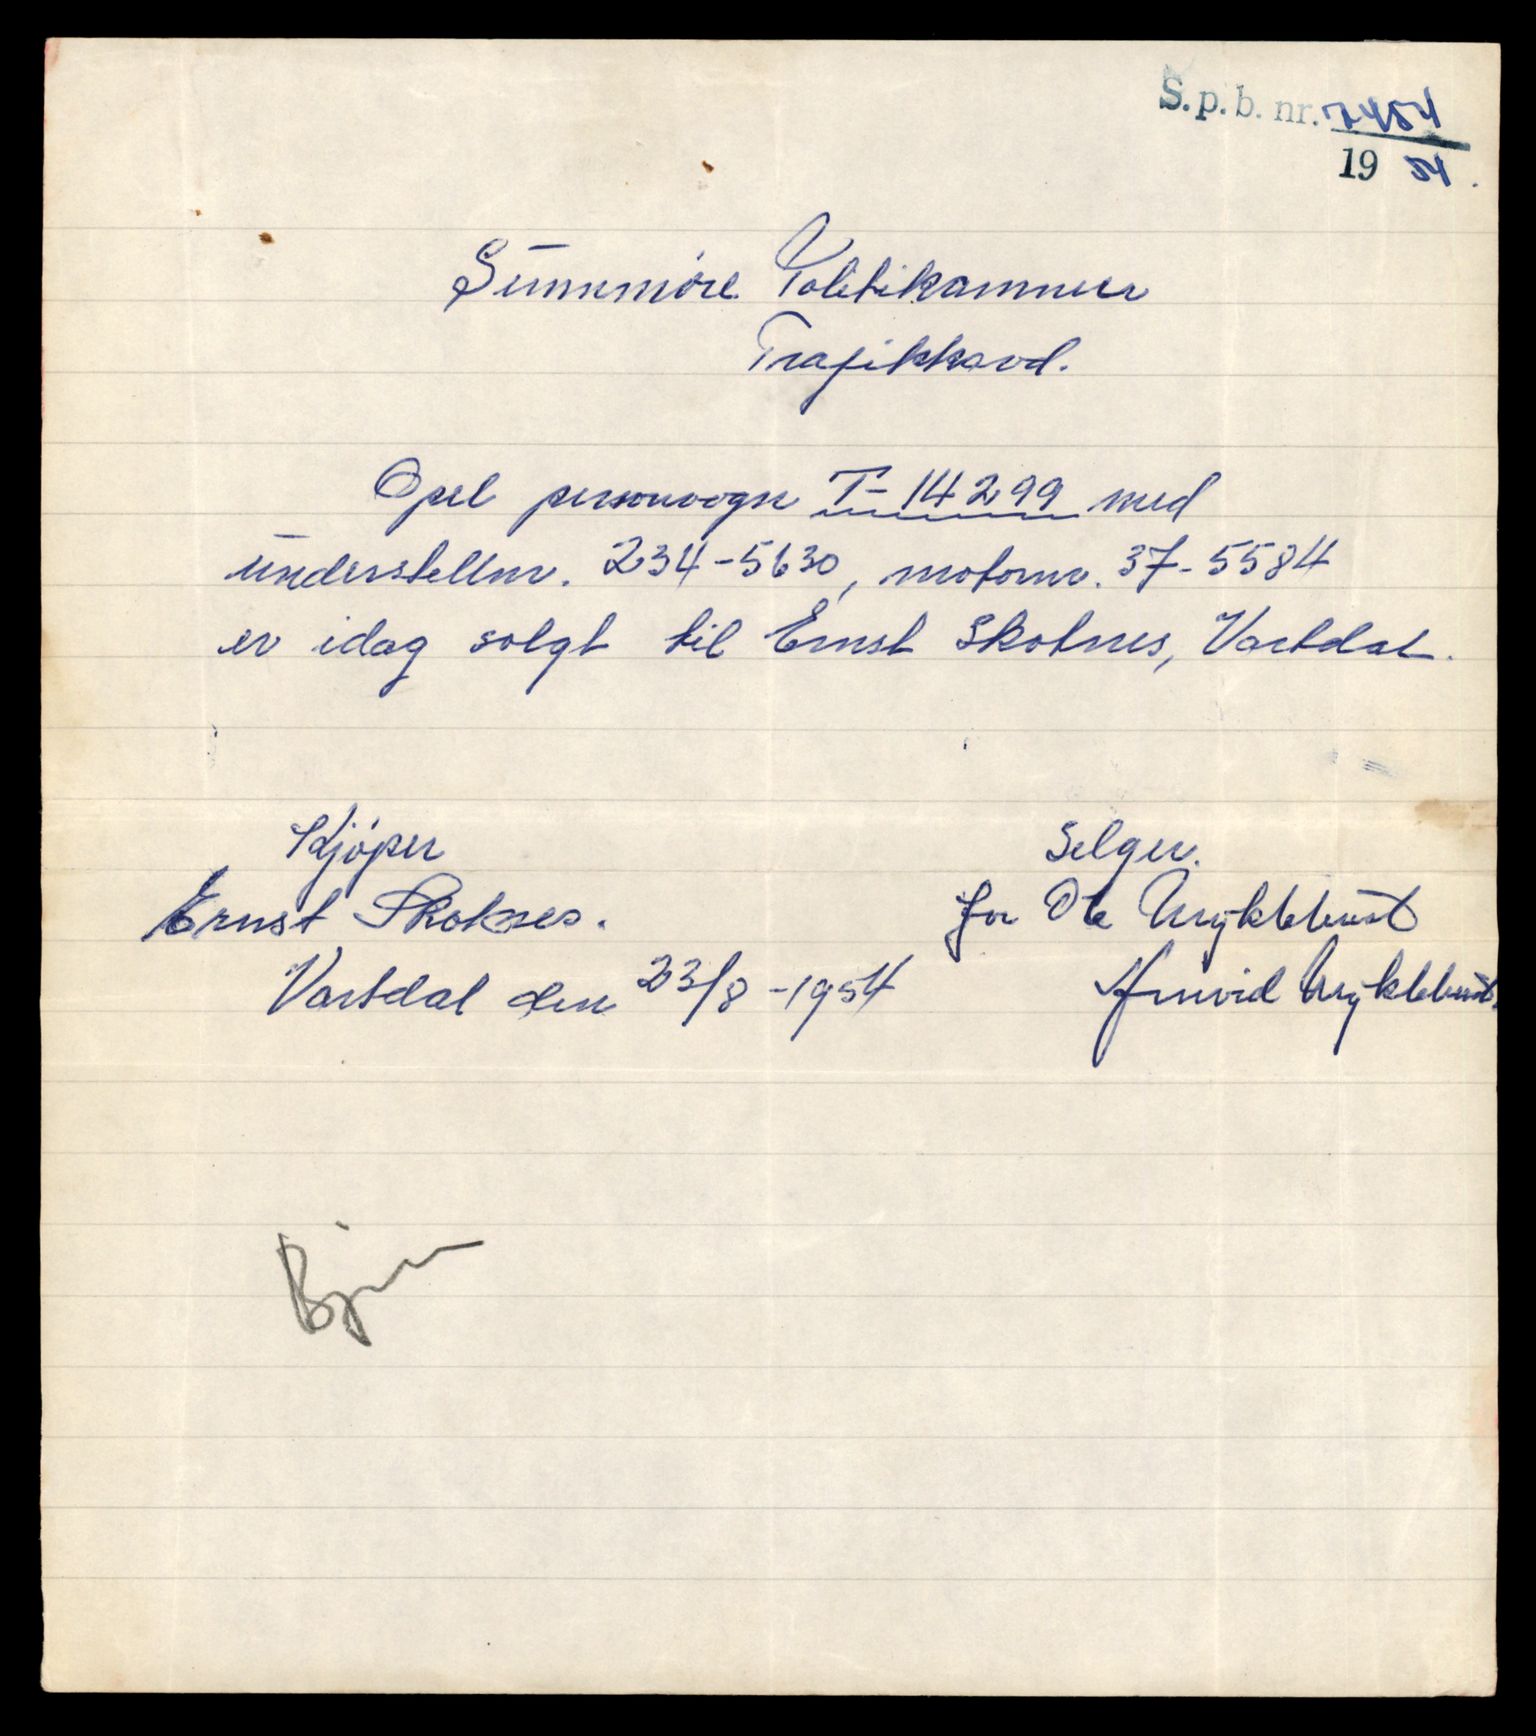 S.p.b. nr. 7454
19 54.
Sunnmöre Politikammer
Trafikkavd.
Opel personvogn T-14299 med
understellnr. 234-5630, motornr. 37-5584
er idag solgt til Ernst Skotnes, Vartdal.
Kjöper
Selger.
Ernst Skotnes.
for Ole Myklebust
Vartdal den 23/8-1954
Arnvid Myklebust